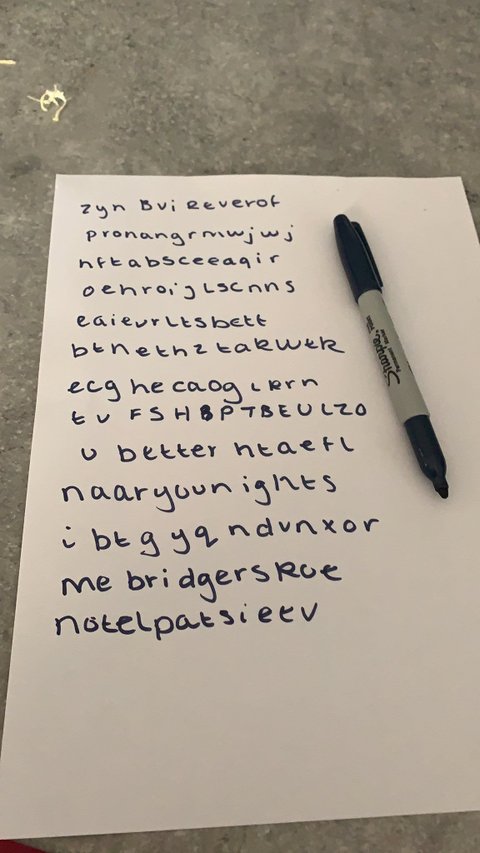 zyn Bvi Reverof
pronangrmwjwj
hftabsceeaqir
oehroijLscnns
eaievrLtsbett
btnethztakWtk
ecghecaogLkrn
tv FSHBPTBEULZO
u better htaefl
naaryouunights
i btgyqndvnxor
me bridgerskoe
notelpatsietv
Sharpie